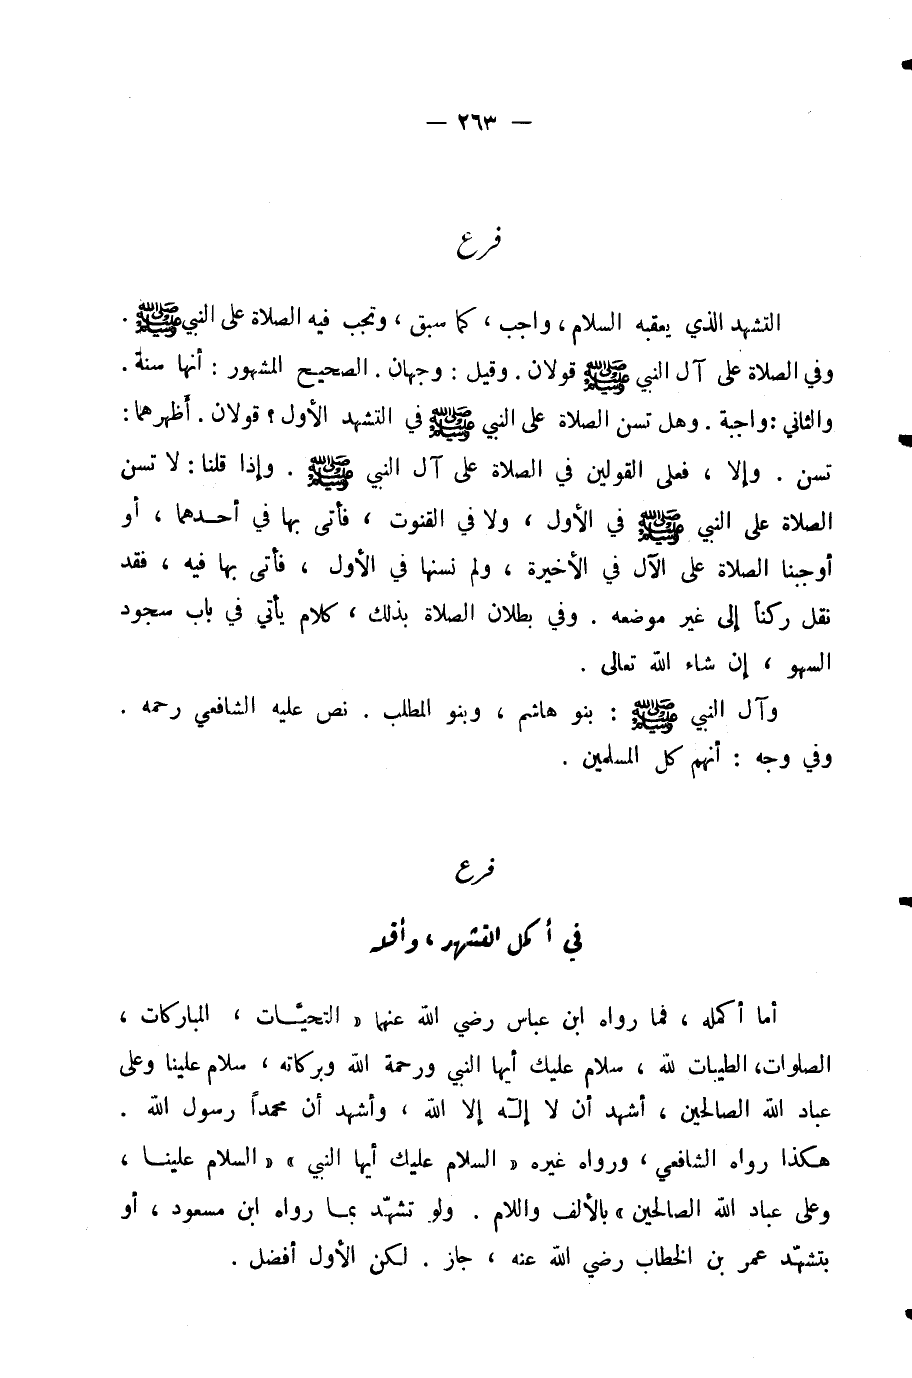 — ٢٦٣ —
فرع
التشهد الذي يعقبه السلام ، واجب ، كما سبق ، وتجب فيه الصلاة على النبي ﷺ .
وفي الصلاة على آل النبي ﷺ قولان . وقيل : وجهان . الصحيح المشهور : أنها سنة .
والثاني : واجبة . وهل تسن الصلاة على النبي ﷺ في التشهد الأول ؟ قولان . أظهرهما :
تسن . وإلا ، فعلى القولين في الصلاة على آل النبي ﷺ . وإذا قلنا : لا تسن
الصلاة على النبي ﷺ في الأول ، ولا في القنوت ، فأتى بها في أحـدهما ، أو
أوجبنا الصلاة على الآل في الأخيرة ، ولم نسنها في الأول ، فأتى بها فيه ، فقد
نقل ركناً إلى غير موضعه . وفي بطلان الصلاة بذلك ، كلام يأتي في باب سجود
السهو ، إن شاء الله تعالى .
وآل النبي ﷺ : بنو هاشم ، وبنو المطلب . نص عليه الشافعي رحمه .
وفي وجه : أنهم كل المسلمين .
فرع
في أكمل التشهد ، وأقله
أما أكمله ، فما رواه ابن عباس رضي الله عنهما « التحيَّـات ، المباركات ،
الصلوات ، الطيبات لله ، سلام عليك أيها النبي ورحمة الله وبركاته ، سلام علينا وعلى
عباد الله الصالحين ، أشهد أن لا إلـٓه إلا الله ، وأشهد أن محمداً رسول الله .
هـكذا رواه الشافعي ، ورواه غيره « السلام عليك أيها النبي » « السلام علينـا ،
وعلى عباد الله الصالحين » بالألف واللام . ولو تشهّد بمـا رواه ابن مسعود ، أو
بتشهّد عمر بن الخطاب رضي الله عنه ، جاز . لـكن الأول أفضل .